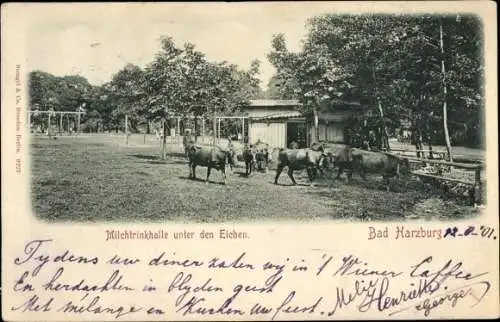 Stengel & Co., Dresden-Berlin.
Milchtrinkhalle unter den Eichen.
Bad Harzburg
'01.
Tydens uw diner zaten wij in 't Wiener Caffee
En herdachten in blyden geest
Met mélange en Kuchen uw feest.
Melie
Henriëtte
George